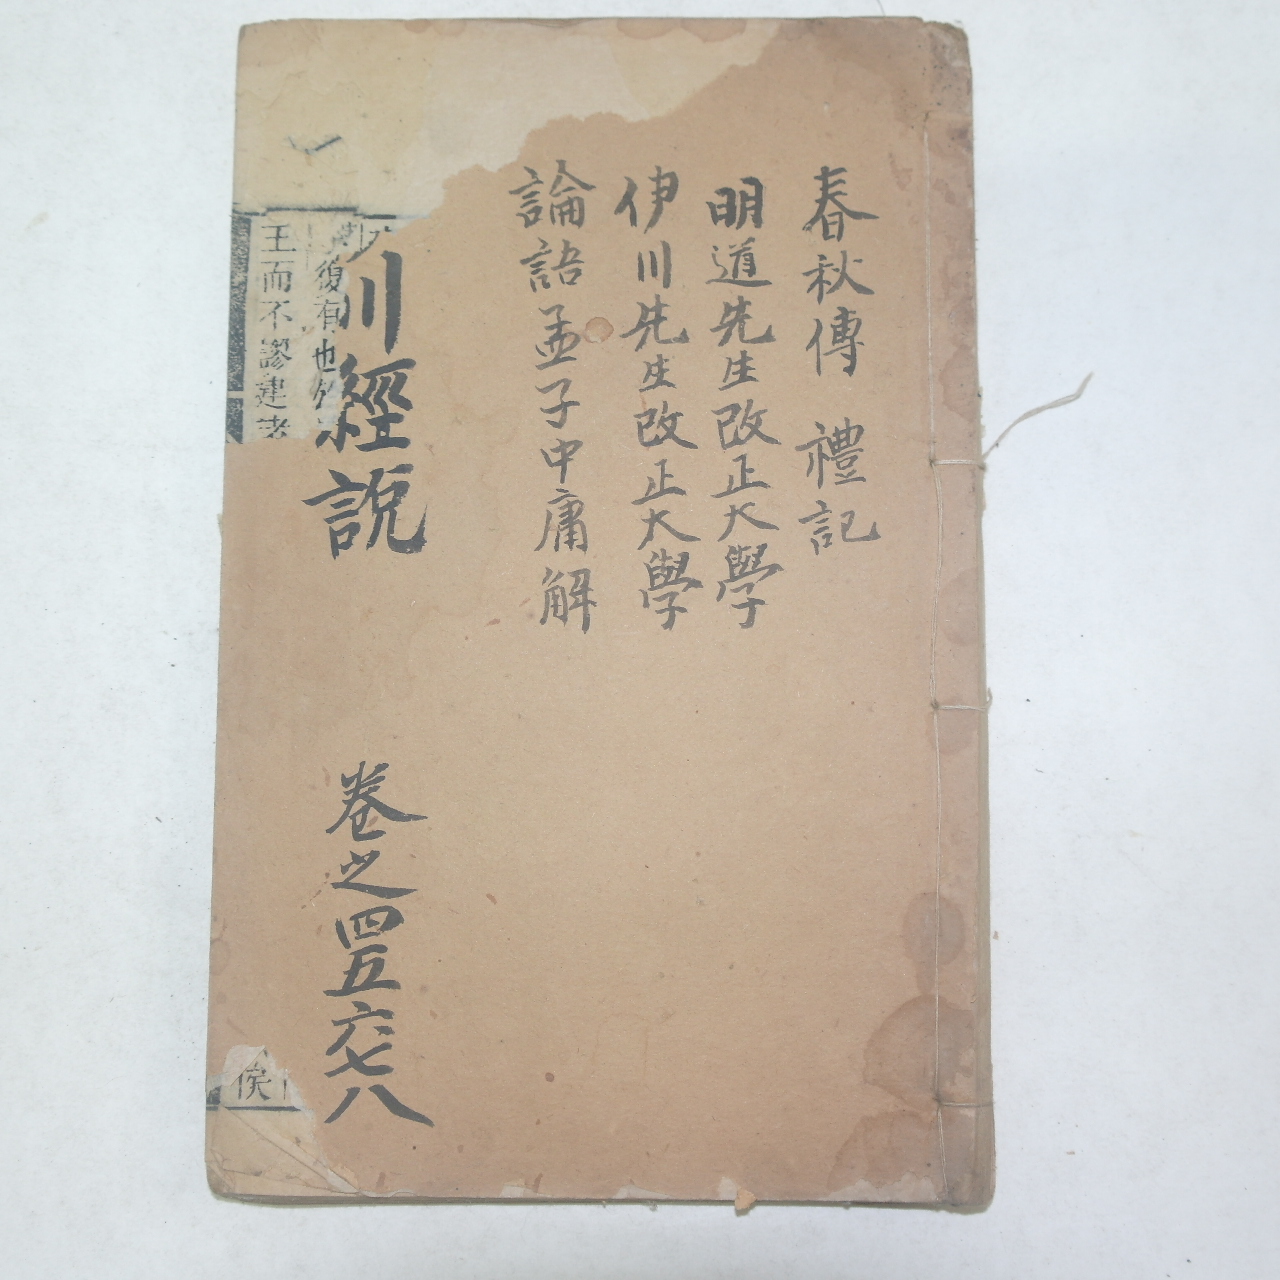 春秋傳 禮記
明道先生改正大學
伊川先生改正大學
論語孟子中庸解
川經說
卷之四五六七八
復有也
王而不謬建諸
侯